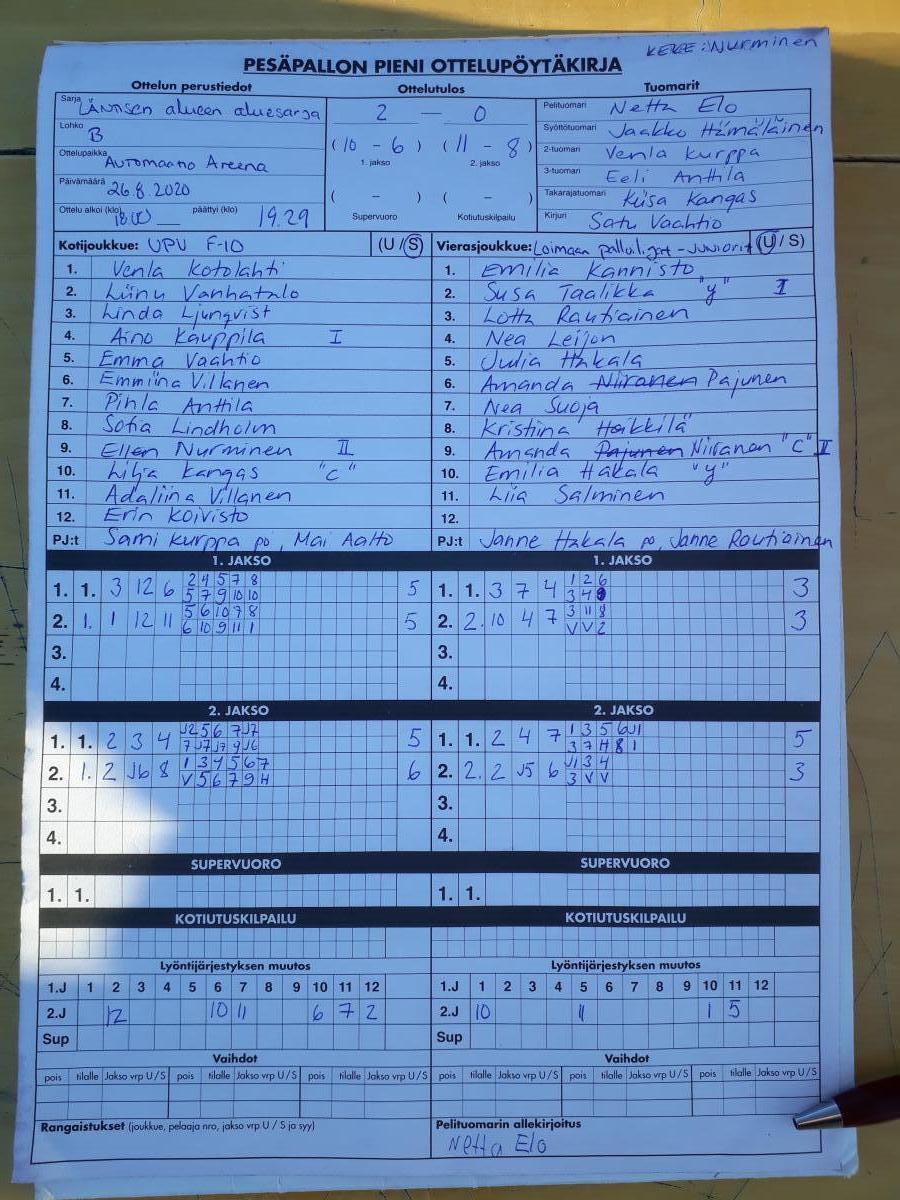 KEKE: Nurminen
PESÄPALLON PIENI OTTELUPÖYTÄKIRJA
Ottelun perustiedot Ottelutulos Tuomarit
Sarja Läntisen alueen aluesarja
Lohko B
Ottelupaikka Automaatio Areena
Päivämäärä 26.8.2020
Ottelu alkoi (klo) päättyi (klo) 19.29
2 — 0
(10 - 6) (11 - 8)
1. jakso 2. jakso
( - ) ( - )
Supervuoro Kotiutuskilpailu
Pelituomari Netta Elo
Syöttötuomari Jaakko Hämäläinen
2-tuomari Venla Kurppa
3-tuomari Eeli Anttila
Takarajatuomari Kiisa Kangas
Kirjuri Satu Vaahtio
Kotijoukkue: UPV F-10 (U / S)
1. Venla Kotolahti
2. Liinu Vanhatalo
3. Linda Ljungvist
4. Aino Kauppila I
5. Emma Vaahtio
6. Emmiina Villanen
7. Pihla Anttila
8. Sofia Lindholm
9. Ellen Nurminen II
10. Lilja Kangas "C"
11. Adaliina Villanen
12. Erin Koivisto
PJ:t Sami Kurppa po, Mai Aalto
Vierasjoukkue: Loimaan palloliigat - Juniorit (U / S)
1. Emilia Kannisto
2. Susa Taalikka "y" I
3. Lotta Rautiainen
4. Nea Leijon
5. Julia Hakala
6. Amanda Niiranen Pajunen
7. Nea Suoja
8. Kristiina Heikkilä
9. Amanda Pajunen Niiranen "C" II
10. Emilia Hakala "y"
11. Liia Salminen
12.
PJ:t Janne Hakala po, Janne Rautiainen
1. JAKSO
1. 1. 3 12 6 2 4 5 7 8 5
5 7 9 10 10
2. 1. 1 12 11 5 6 10 7 8 5
6 10 9 11 1
3.
4.
1. JAKSO
1. 1. 3 7 4 1 2 6 3
3 4
2. 2. 10 4 7 3 11 8 3
V V 2
3.
4.
2. JAKSO
1. 1. 2 3 4 J2 5 6 7 J7 5
7 J7 J7 9 J6
2. 1. 2 J6 8 1 3 4 5 6 7 6
V 5 6 7 9 H
3.
4.
2. JAKSO
1. 1. 2 4 7 1 3 5 6 J1 5
3 7 H 8 1
2. 2. 2 J5 6 J1 3 4 3
3 V V
3.
4.
SUPERVUORO
1. 1.
SUPERVUORO
1. 1.
KOTIUTUSKILPAILU
KOTIUTUSKILPAILU
Lyöntijärjestyksen muutos
1.J 1 2 3 4 5 6 7 8 9 10 11 12
2.J 12 10 11 6 7 2
Sup
Lyöntijärjestyksen muutos
1.J 1 2 3 4 5 6 7 8 9 10 11 12
2.J 10 11 1 5
Sup
Vaihdot
pois tilalle Jakso vrp U / S pois tilalle Jakso vrp U / S pois tilalle Jakso vrp U / S
Vaihdot
pois tilalle Jakso vrp U / S pois tilalle Jakso vrp U / S pois tilalle Jakso vrp U / S
Rangaistukset (joukkue, pelaaja nro, jakso vrp U / S ja syy)
Pelituomarin allekirjoitus
Netta Elo